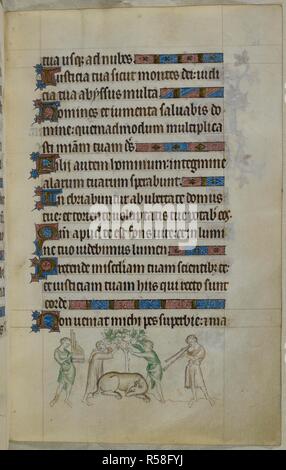 tua usq; ad nubes
Iusticia tua sicut montes dei: iudi
cia tua abyssus multa
Homines et iumenta saluabis do
mine: quemadmodum multiplica
sti miam tuam ds
Filii autem hominum: in tegmine
alarum tuarum sperabunt
In ebriabuntur ab ubertate domus
tue: et torrente uoluptatis tue potab eos
Qm apud te est fons uite: et in lumi
ne tuo uidebimus lumen
Pretende misericdiam tuam scientib; te:
et iusticiam tuam hiis qui recto sunt
corde
Non ueniat michi pes superbie: et ma
alamy
Image ID: R58FYJ
www.alamy.com